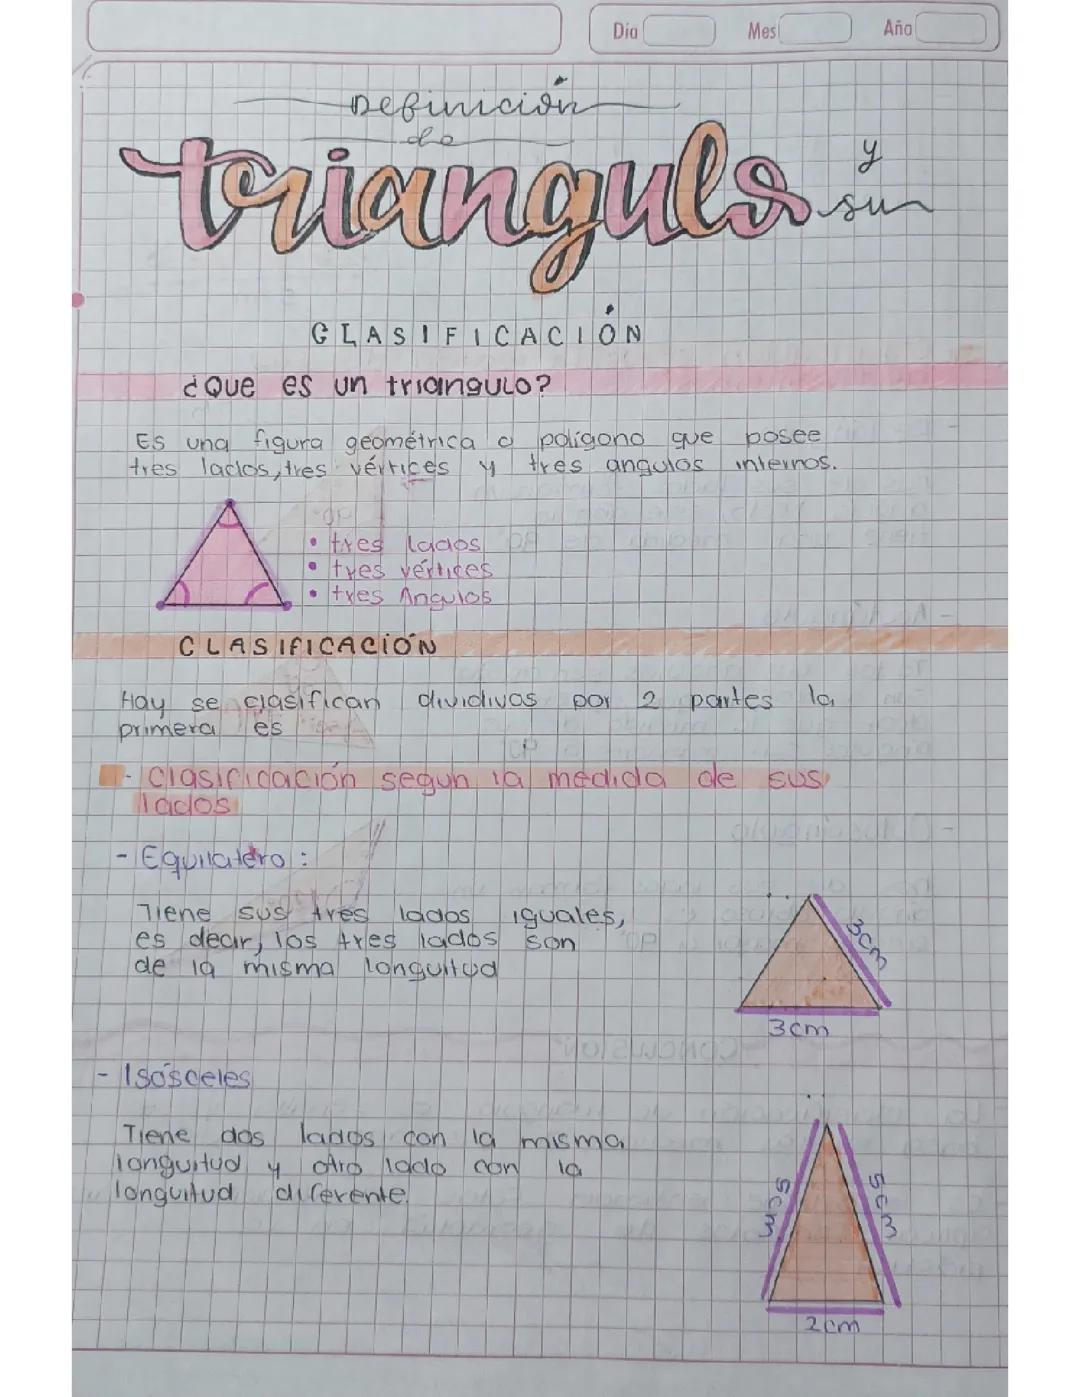 Día Mes Año
Definición
de
triangulo y
su
CLASIFICACIÓN
¿Que es un triangulo?
Es una figura geométrica o polígono que posee
tres lados, tres vértices y tres angulos internos.
• tres lados
• tres vértices
• tres Angulos
CLASIFICACIÓN
Hay se clasifican dividivos por 2 partes la
primera es
- Clasificación segun la medida de sus
lados
- Equilatero :
Tiene sus tres lados iguales,
es decir, los tres lados son
de la misma longuitud
3cm
3cm
- Isósceles
Tiene dos lados con la misma
longuitud y otro lado con la
longuitud diferente.
5cm
5cm
2cm